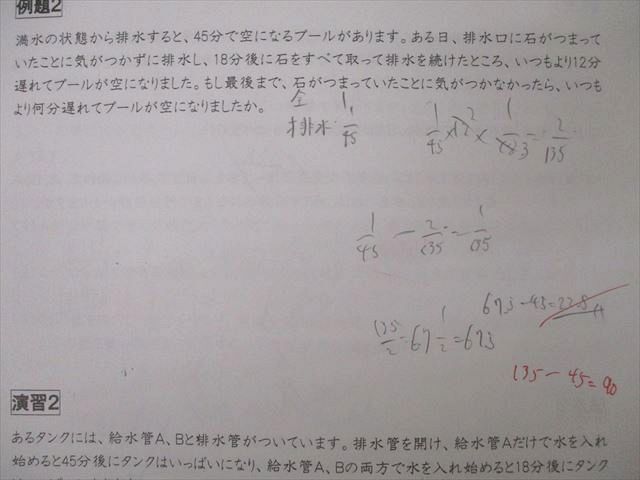 例題2
満水の状態から排水すると、45分で空になるプールがあります。ある日、排水口に石がつまって
いたことに気がつかずに排水し、18分後に石をすべて取って排水を続けたところ、いつもより12分
遅れてプールが空になりました。もし最後まで、石がつまっていたことに気がつかなかったら、いつも
より何分遅れてプールが空になりましたか。
全 1
排水 1/45
1/45 × 12 2 × 1/18 3 = 2/135
1/45 - 2/135 = 1/135
135/2 = 67 1/2 = 67.5
135 - 45 = 90
演習2
あるタンクには、給水管A、Bと排水管がついています。排水管を開け、給水管Aだけで水を入れ
始めると45分後にタンクはいっぱいになり、給水管A、Bの両方で水を入れ始めると18分後にタンク